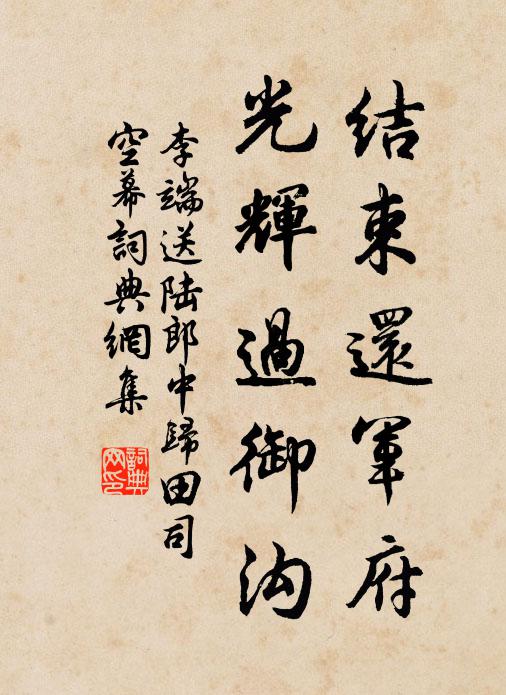 結束還軍府
光輝過御沟
李端送陆郎中歸田司
空幕詞典網集
詞典
网印